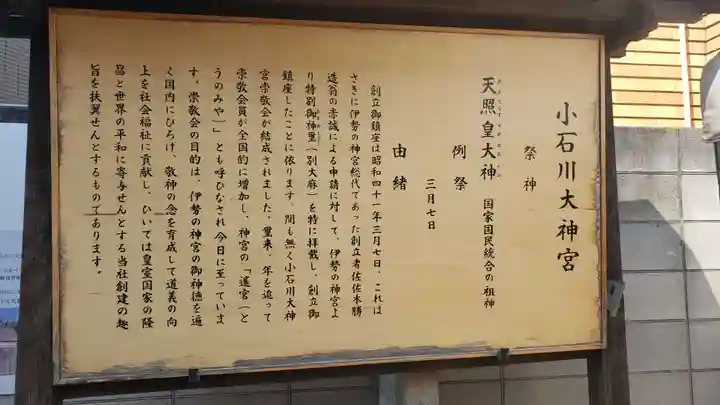 小石川大神宮
祭神
天照皇大神　国家国民統合の祖神
例祭
三月七日
由緒
創立御鎮座は昭和四十一年三月七日、これは
さきに伊勢の神宮総代であった創立者佐佐木勝
造翁の赤誠による申請に対して、伊勢の神宮よ
り特別御神璽（別大麻）を特に拝戴し、創立御
鎮座したことに依ります。間も無く小石川大神
宮崇敬会が結成されました。爾来、年を追って
崇敬会員が全国的に増加し、神宮の「遙宮（と
うのみや）」とも呼びなされ今日に至っていま
す。崇敬会の目的は、伊勢の神宮の御神徳を遍
く国内にひろげ、敬神の念を育成して道義の向
上を社会福祉に貢献し、ひいては皇室国家の隆
昌と世界の平和に寄与せんとする当社創建の趣
旨を扶翼せんとするものであります。